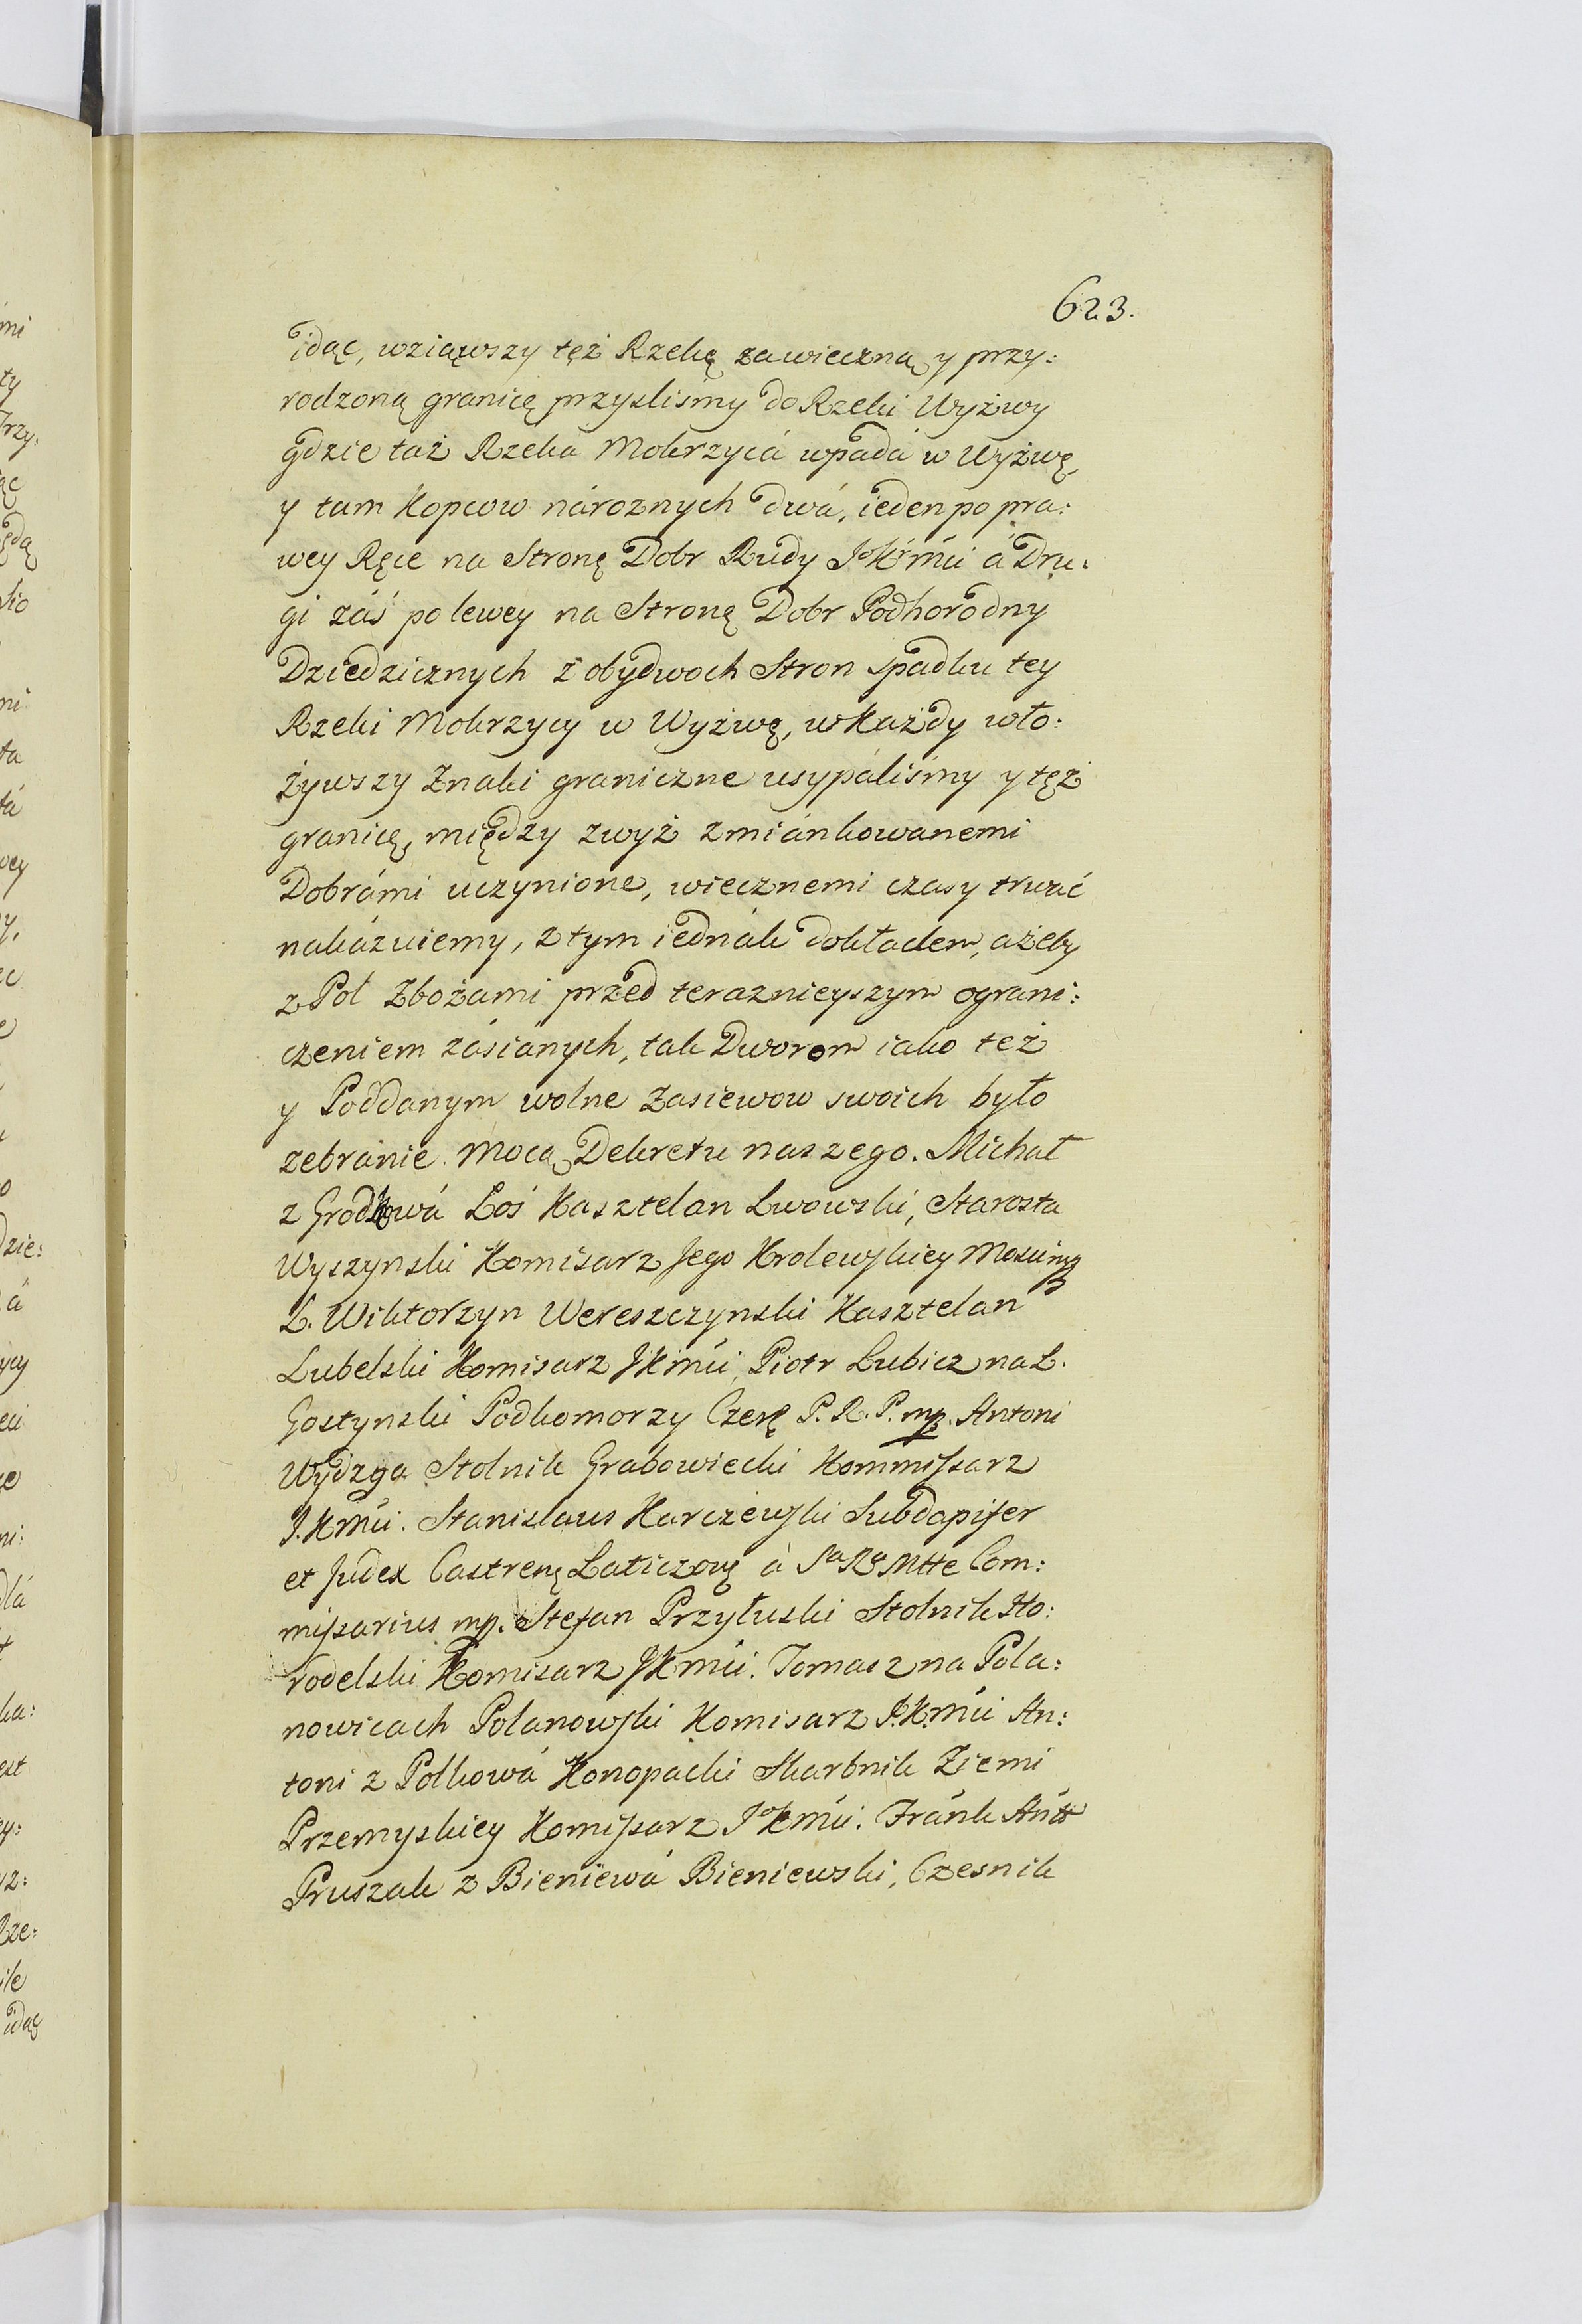 623.
idąc, wziąwszy tęż Rzekę zawieczną y przy:
rodzoną granicę przyslismy do Rzeki Wyżwy
gdzie taż Rzeka Mokrzycá wpada w Wyżwę,
y tam Kopcow nároznych dwá, ieden po pra:
wey Ręce na Stronę Dobr Rudy JoKrmći á Dru:
gi záś po lewey na Stronę Dobr Podhorodny
Dziedzicznych z obydwoch Stron spadku tey
Rzeki Mokrzycy w Wyżwę, w Każdy wło:
żywszy Znaki graniczne usypáliśmy y tęż
granicę, między zwyż zmiánkowanemi
Dobrámi uczynione, wiecznemi czasy trwáć
nakázuiemy, z tym iednák dokładem, ażeby
z Pol Zbożami przed teraznieyszym ograni:
czeniem zásianych, tak Dworom iako też
y Poddanym wolne Zasiewow swoich było
zebránie. Mocą Dekretu naszego. Michał
z Grodkowá Łoś Kasztelan Lwowski, Starosta
Wyszynski Komisarz Jego Krolewskiey Mości mp
L. Wiktorzyn Wereszczynski Kasztelan
Lubelski Komisarz JKmći, Piotr Lubicz na L.
Gostynski Podkomorzy Czerę P. R. P. mp. Antoni
Wydzga Stolnik Grabowiecki Kommissarz
J. Kmći. Stanislaus Karczewski Subdapifer
et Judex Castrenę Laticzovę á Sa Ra Mtte Com:
missarius mp. Stefan Przyłuski Stolnik Ho:
rodelski Komisarz JKmći. Tomasz na Pola:
nowicach Polanowski Komisarz J. Kmći An:
toni z Polkowá Konopacki Skarbnik Ziemi
Przemyskiey Komissarz JoKmći. Fránk Ánt
Pruszak z Bieniewá Bieniewski, Czesnik